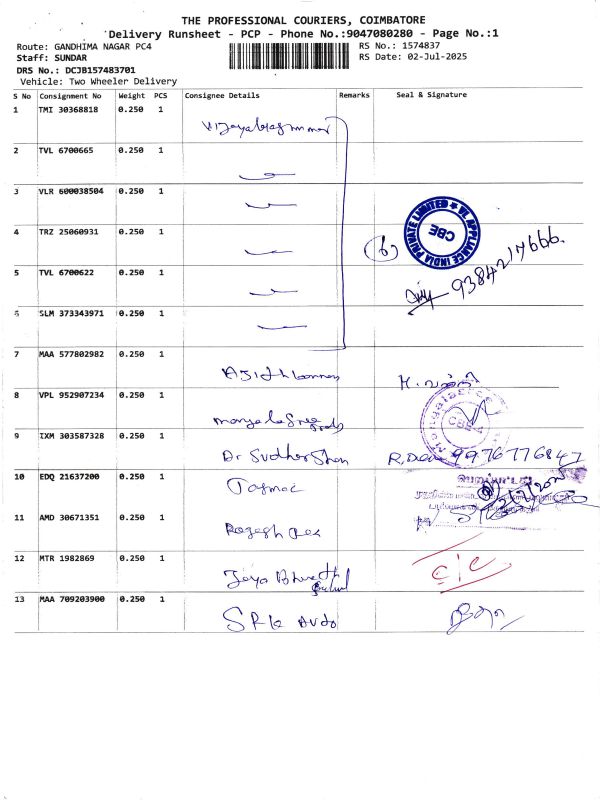 THE PROFESSIONAL COURIERS, COIMBATORE
Delivery Runsheet - PCP - Phone No.:9047080280 - Page No.:1
Route: GANDHIMA NAGAR PC4
RS No.: 1574837
Staff: SUNDAR
RS Date: 02-Jul-2025
DRS No.: DCJB157483701
Vehicle: Two Wheeler Delivery
S No Consignment No Weight PCS Consignee Details Remarks Seal & Signature
1 TMI 30368818 0.250 1
2 TVL 6700665 0.250 1
3 VLR 600038504 0.250 1
VL APPLIANCE INDIA PRIVATE LIMITED
CBE
4 TRZ 25060931 0.250 1
(6)
9384217666.
5 TVL 6700622 0.250 1
6 SLM 373343971 0.250 1
7 MAA 577802982 0.250 1
8 VPL 952907234 0.250 1
9 IXM 303587328 0.250 1 Dr Sudhershan
9976776847
10 EDQ 21637200 0.250 1 Tasmac
11 AMD 30671351 0.250 1
12 MTR 1982869 0.250 1
c/c
13 MAA 709203900 0.250 1 SRK Auto